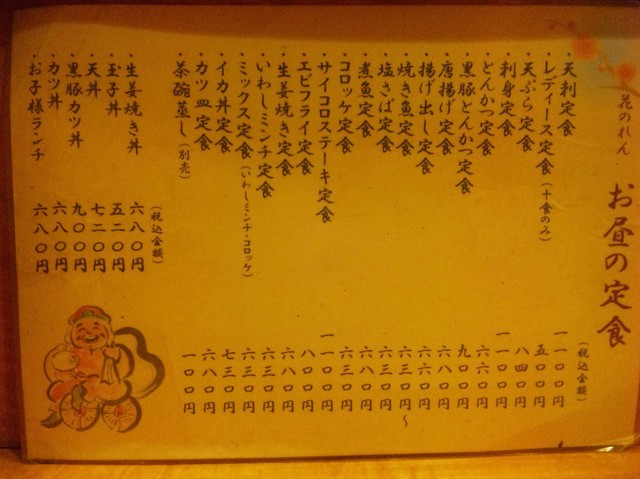 花のれん
お昼の定食
(税込金額)
・天利定食 一一〇〇円
・レディース定食(十食のみ) 五〇〇円
・天ぷら定食 八四〇円
・刺身定食 一一〇〇円
・とんかつ定食 六六〇円
・黒豚とんかつ定食 九〇〇円
・唐揚げ定食 六八〇円
・揚げ出し定食 六六〇円
・焼き魚定食 六三〇円〜
・塩さば定食 六三〇円
・煮魚定食 六八〇円
・コロッケ定食 六三〇円
・サイコロステーキ定食 一一〇〇円
・エビフライ定食 八〇〇円
・生姜焼き定食 六八〇円
・いわしミンチ定食 六三〇円
・ミックス定食(いわしミンチ・コロッケ) 六三〇円
・イカ丼定食 七三〇円
・カツ皿定食 六八〇円
・茶碗蒸し(別売) 一〇〇円
(税込金額)
・生姜焼き丼 六八〇円
・玉子丼 五二〇円
・天丼 七二〇円
・黒豚カツ丼 九〇〇円
・カツ丼 六八〇円
・お子様ランチ 六八〇円